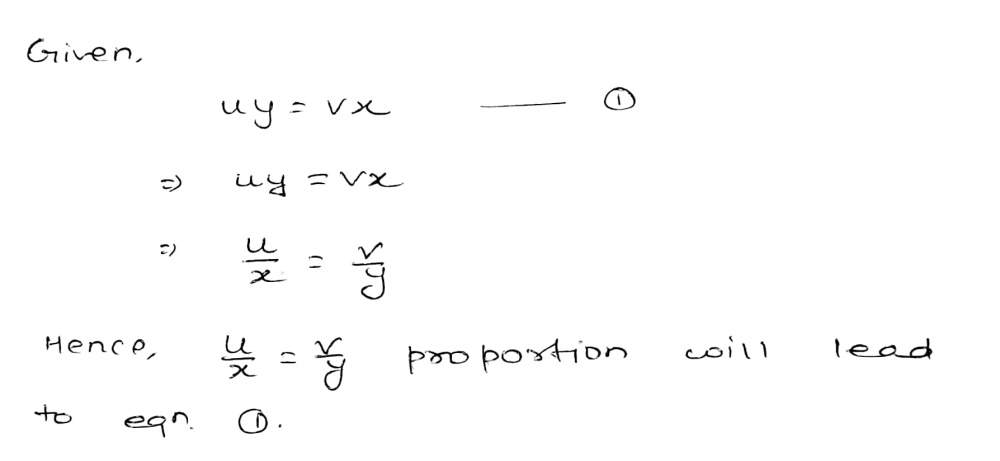 Given,
uy = vx —— ①
⇒ uy = vx
⇒ u/x = v/y
Hence, u/x = v/y proportion will lead
to eqn. ①.